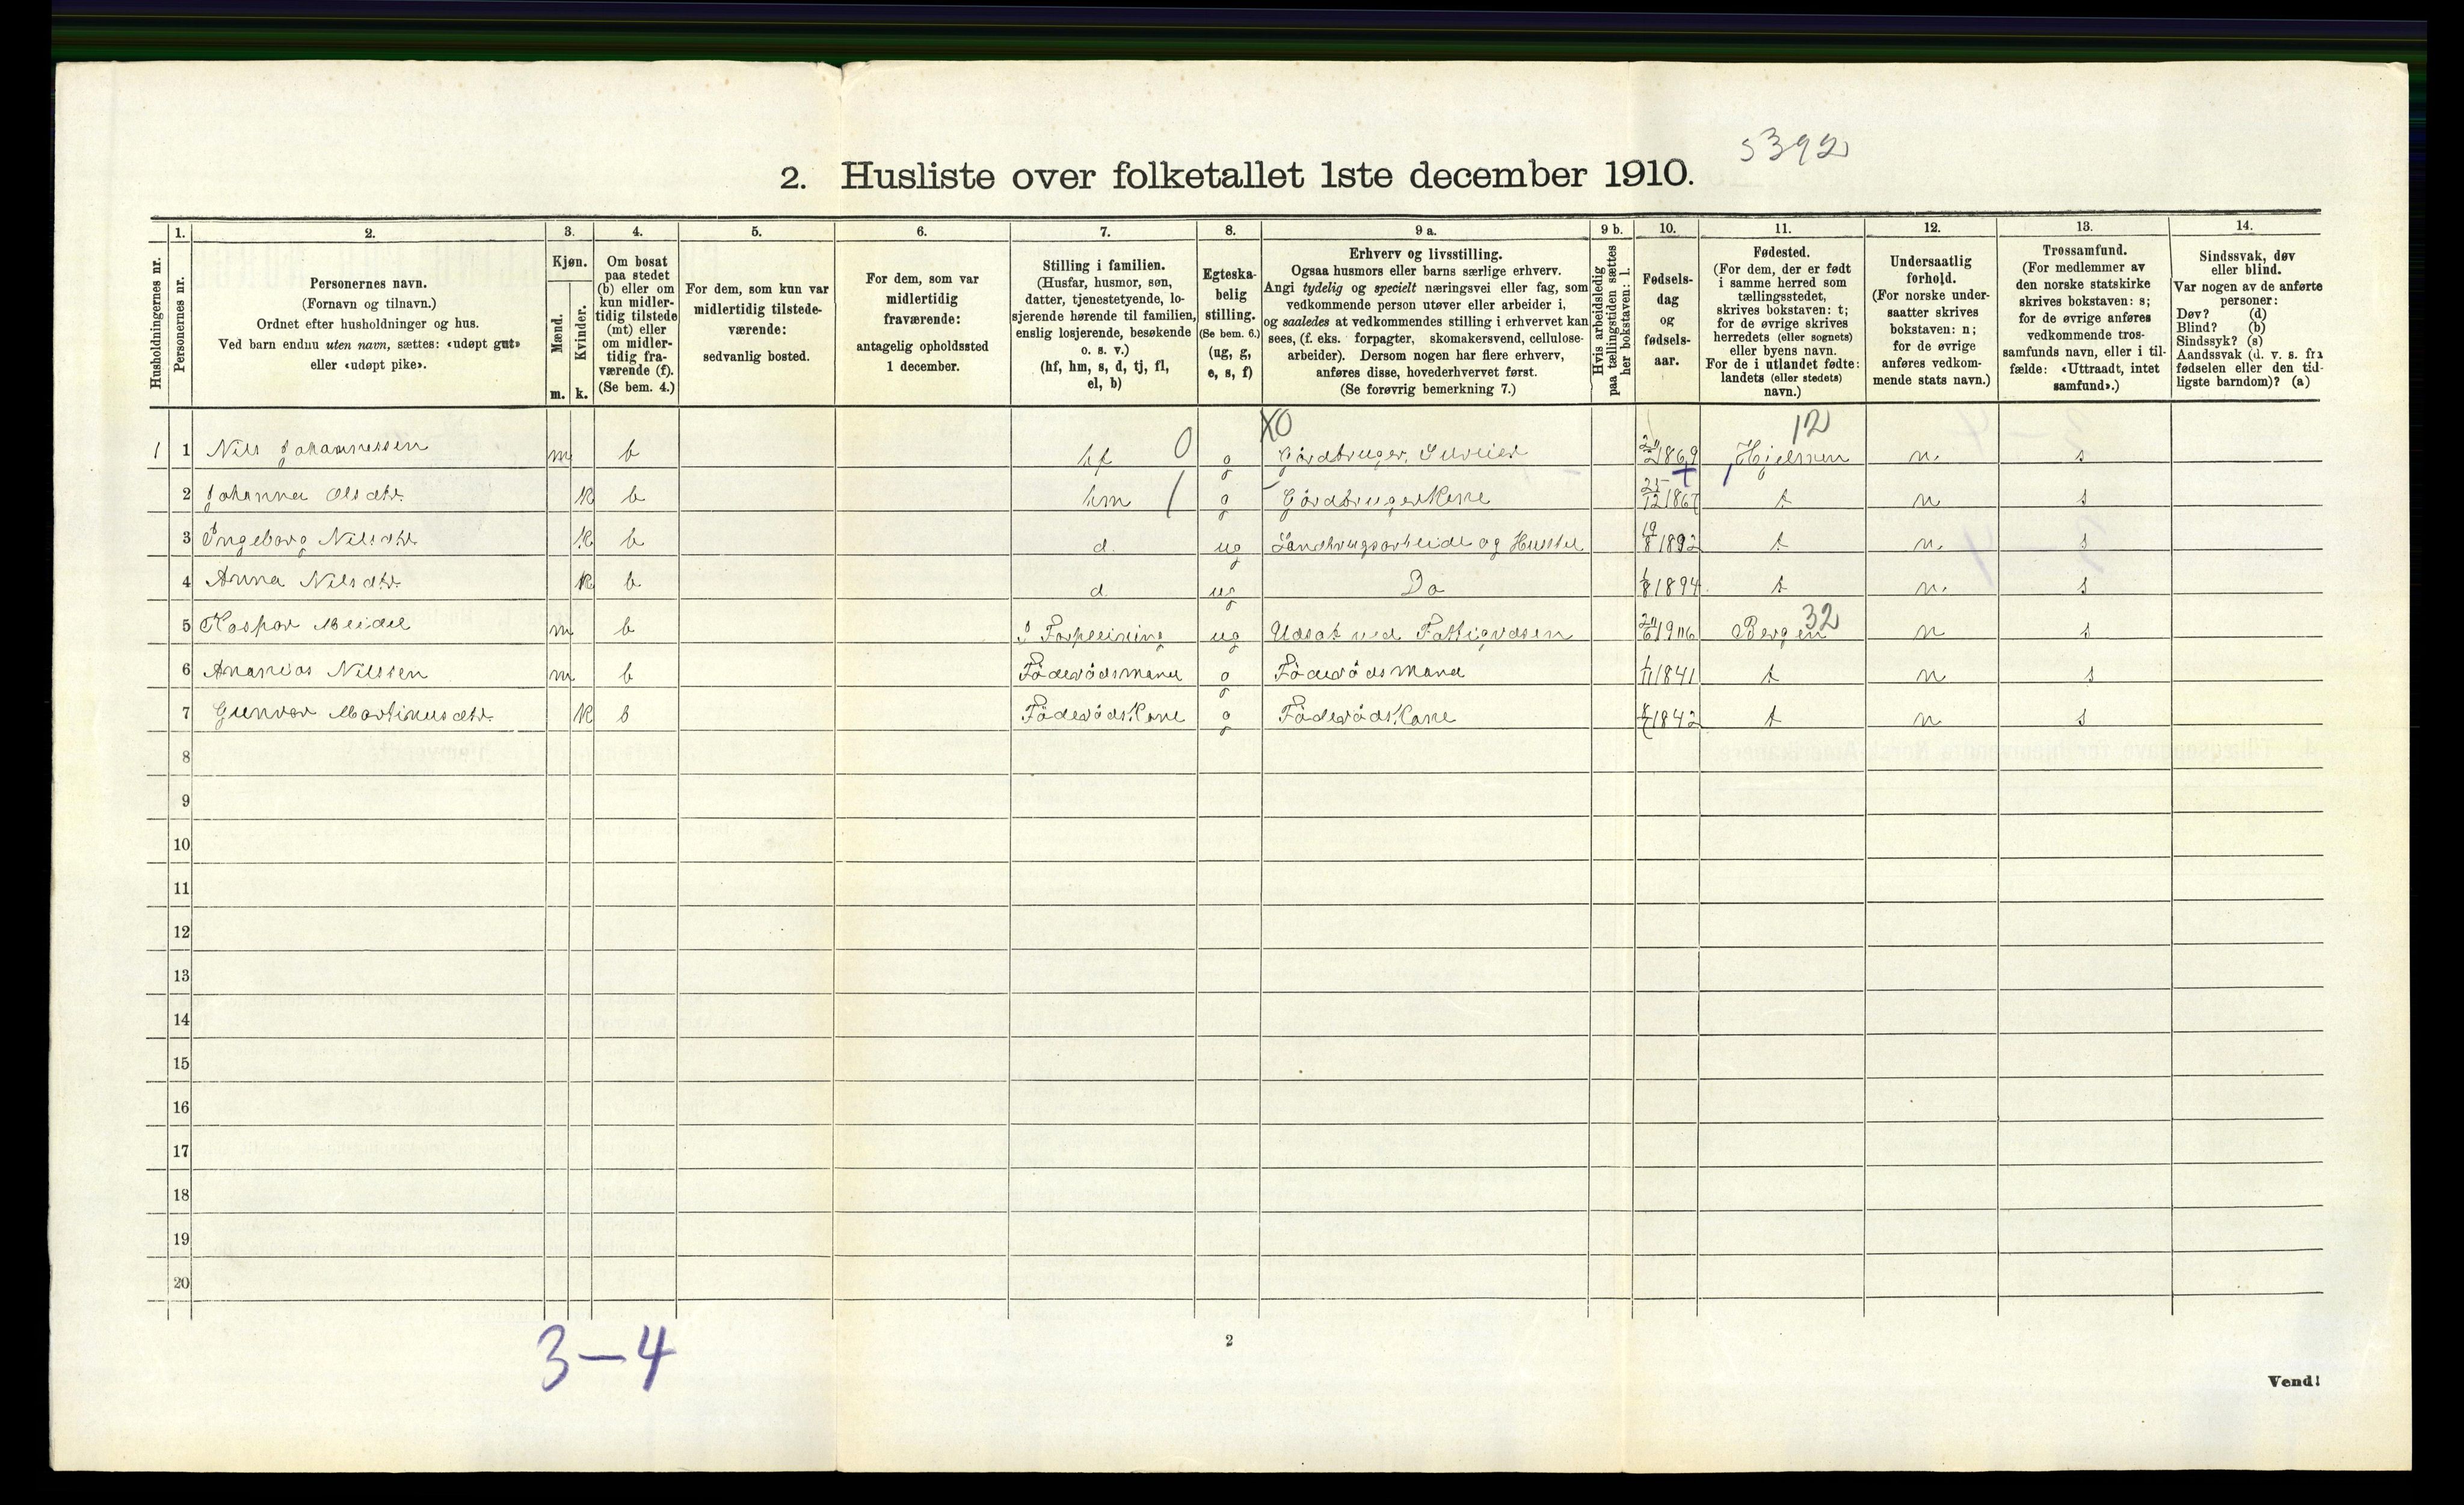 5392
2. Husliste over folketallet 1ste december 1910.
Husholdningernes nr.
1.
Personernes nr.
2.
Personernes navn.
(Fornavn og tilnavn.)
Ordnet efter husholdninger og hus.
Ved barn endnu uten navn, sættes: «udøpt gut»
eller «udøpt pike».
3.
Kjøn.
Mænd.
Kvinder.
m. k.
4.
Om bosat
paa stedet
(b) eller om
kun midler-
tidig tilstede
(mt) eller
om midler-
tidig fra-
værende (f).
(Se bem. 4.)
5.
For dem, som kun var
midlertidig tilstede-
værende:
sedvanlig bosted.
6.
For dem, som var
midlertidig
fraværende:
antagelig opholdssted
1 december.
7.
Stilling i familien.
(Husfar, husmor, søn,
datter, tjenestetyende, lo-
sjerende hørende til familien,
enslig losjerende, besøkende
o. s. v.)
(hf, hm, s, d, tj, fl,
el, b)
8.
Egteska-
belig
stilling.
(Se bem. 6.)
(ug, g,
e, s, f)
9 a.
Erhverv og livsstilling.
Ogsaa husmors eller barns særlige erhverv.
Angi tydelig og specielt næringsvei eller fag, som
vedkommende person utøver eller arbeider i,
og saaledes at vedkommendes stilling i erhvervet kan
sees, (f. eks. forpagter, skomakersvend, cellulose-
arbeider). Dersom nogen har flere erhverv,
anføres disse, hovederhvervet først.
(Se forøvrig bemerkning 7.)
9 b.
Hvis arbeidsledig
paa tællingstiden sættes
her bokstaven: l.
10.
Fødsels-
dag
og
fødsels-
aar.
11.
Fødested.
(For dem, der er født
i samme herred som
tællingsstedet,
skrives bokstaven: t;
for de øvrige skrives
herredets (eller sognets)
eller byens navn.
For de i utlandet fødte:
landets (eller stedets)
navn.)
12.
Undersaatlig
forhold.
(For norske under-
saatter skrives
bokstaven: n;
for de øvrige
anføres vedkom-
mende stats navn.)
13.
Trossamfund.
(For medlemmer av
den norske statskirke
skrives bokstaven: s;
for de øvrige anføres
vedkommende tros-
samfunds navn, eller i til-
fælde: «Uttraadt, intet
samfund».)
14.
Sindssvak, døv
eller blind.
Var nogen av de anførte
personer:
Døv? (d)
Blind? (b)
Sindssyk? (s)
Aandssvak (d. v. s. fra
fødselen eller den tid-
ligste barndom)? (a)
0 X0 12
1 1 Nils Johannessen m b hf g Gårdbruger, Selveier 1869 Hjelmen n. s
2 Johanna Olsdtr. k b hm g GårdbrugerKone 25/12 1867 t n s
3 Ingeborg Nilsdtr k b d. ug Landbrugsarbeide og Husstel 19/8 1892 t n. s
4 Anna Nilsdtr. k b d ug Do 1/8 1894 t n. s
32
5 Kaspar Meidel m b I Forpleining ug Udsat ved Fattigvæsen 1906 Bergen n s
6 Ananias Nilssen m b Föderådsmand g Föderådsmand 1/11 1841 t n s
7 Gunvor Martinusdtr. k b FöderådsKone g FöderådsKone 1842 t n s
8
9
10
11
12
13
14
15
16
17
18
19
20
3-4
2
Vend!